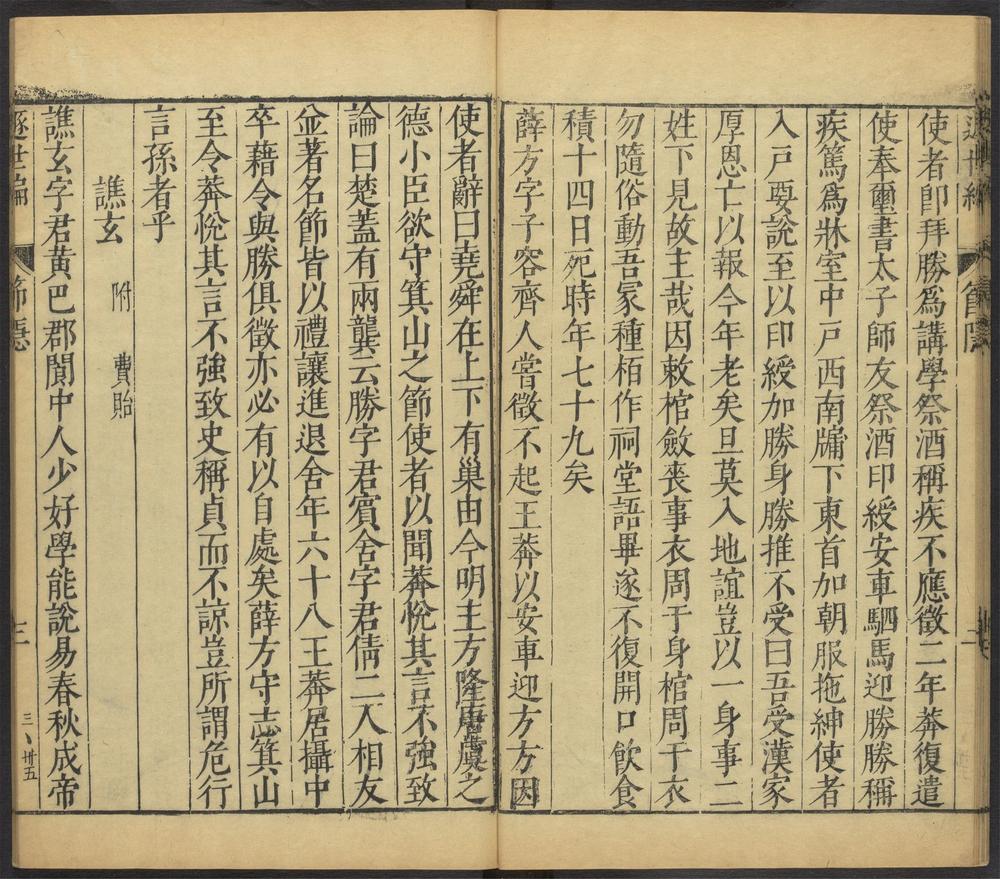 使者即拜勝爲講學祭酒稱疾不應徵二年莽復遣
使奉璽書太子師友祭酒印綬安車駟馬迎勝勝稱
疾篤爲牀室中戸西南牖下東首加朝服拖紳使者
入戸要說至以印綬加勝身勝推不受曰吾受漢家
厚恩亡以報今年老矣旦莫入地誼豈以一身事二
姓下見故主哉因敕棺斂喪事衣周于身棺周于衣
勿隨俗動吾冡種栢作祠堂語畢遂不復開口飲食
積十四日死時年七十九矣
薛方字子容齊人嘗徵不起王莽以安車迎方方因
使者辭曰堯舜在上下有巢由今明主方隆唐虞之
德小臣欲守箕山之節使者以聞莽悅其言不強致
論曰楚蓋有兩龔云勝字君賓舍字君倩二人相友
並著名節皆以禮讓進退舍年六十八王莽居攝中
卒藉令與勝俱徵亦必有以自處矣薛方守志箕山
至令莽悅其言不強致史稱貞而不諒豈所謂危行
言孫者乎
譙玄 附 費貽
譙玄字君黄巴郡閬中人少好學能說易春秋成帝
逐世編 節隱 三 三、卅五